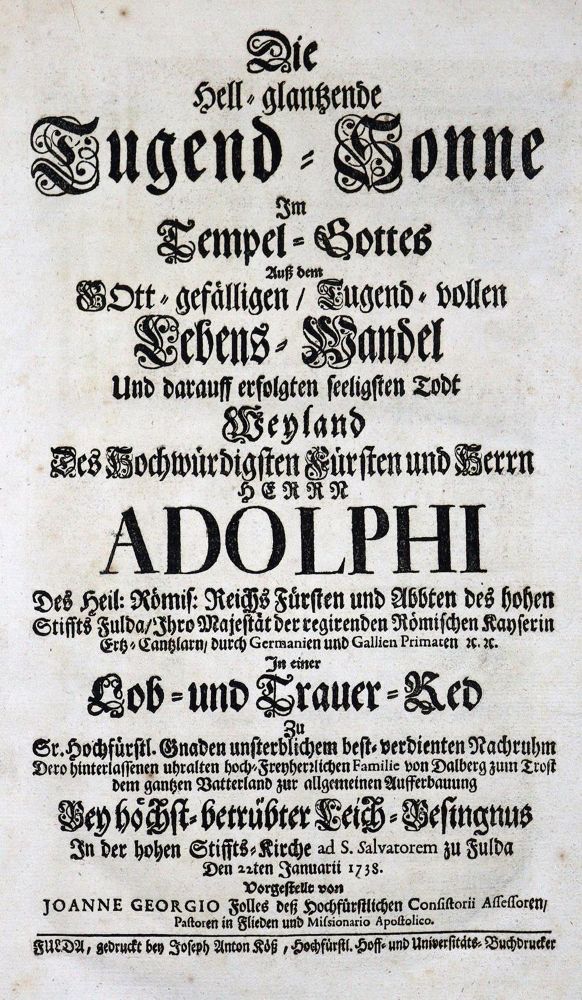 Die
Hell-glantzende
Tugend-Sonne
Im
Tempel-Gottes
Auß dem
GOtt-gefälligen/ Tugend-vollen
Lebens-Wandel
Und darauff erfolgten seeligsten Todt
Weyland
Des Hochwürdigsten Fürsten und Herrn
HERRN
ADOLPHI
Des Heil: Römis: Reichs Fürsten und Abbten des hohen
Stiffts Fulda/Ihro Majestät der regirenden Römischen Kayserin
Ertz-Cantzlarn/ durch Germanien und Gallien Primaten ꝛc. ꝛc.
In einer
Lob-und Trauer-Red
Zu
Sr. Hochfürstl. Gnaden unsterblichem best-verdienten Nachruhm
Dero hinterlassenen uhralten hoch-Freyherzlichen Familie von Dalberg zum Trost
dem gantzen Vatterland zur allgemeinen Aufferbauung
Bey höchst-betrübter Leich-Besingnus
In der hohen Stiffts-Kirche ad S. Salvatorem zu Fulda
Den 22ten Januarii 1738.
Vorgestellt von
JOANNE GEORGIO Folles deß Hochfürstlichen Consistorii Assessoren/
Pastoren in Flieden und Missionario Apostolico.
FULDA, gedruckt bey Joseph Anton Köß, Hochfürstl. Hoff-und Universitäts-Buchdrucker